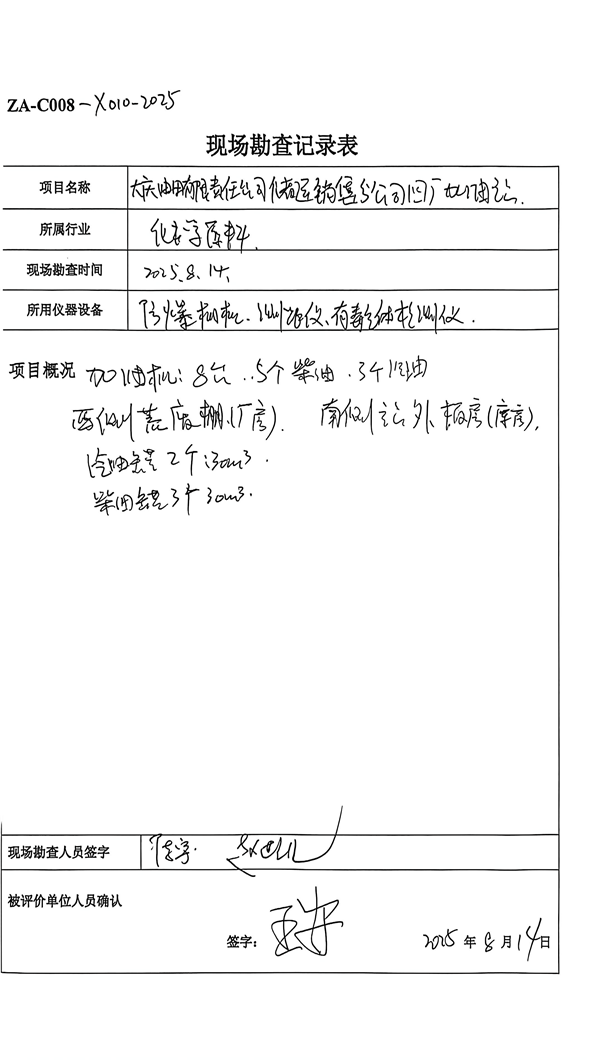 ZA-C008-X010-2025
现场勘查记录表
项目名称 大庆油田有限责任公司化有运销售分公司四厂加油站.
所属行业 化学原料.
现场勘查时间 2025.8.14.
所用仪器设备 防爆相机、测距仪、有毒气体检测仪.
项目概况 加油机: 8台 . 5个柴油 . 3个汽油
西侧 废棚(厂房). 南侧站外板房(库房),
汽油罐2个 30m3.
柴油罐3个 30m3.
现场勘查人员签字
被评价单位人员确认
签字:
2025年8月14日